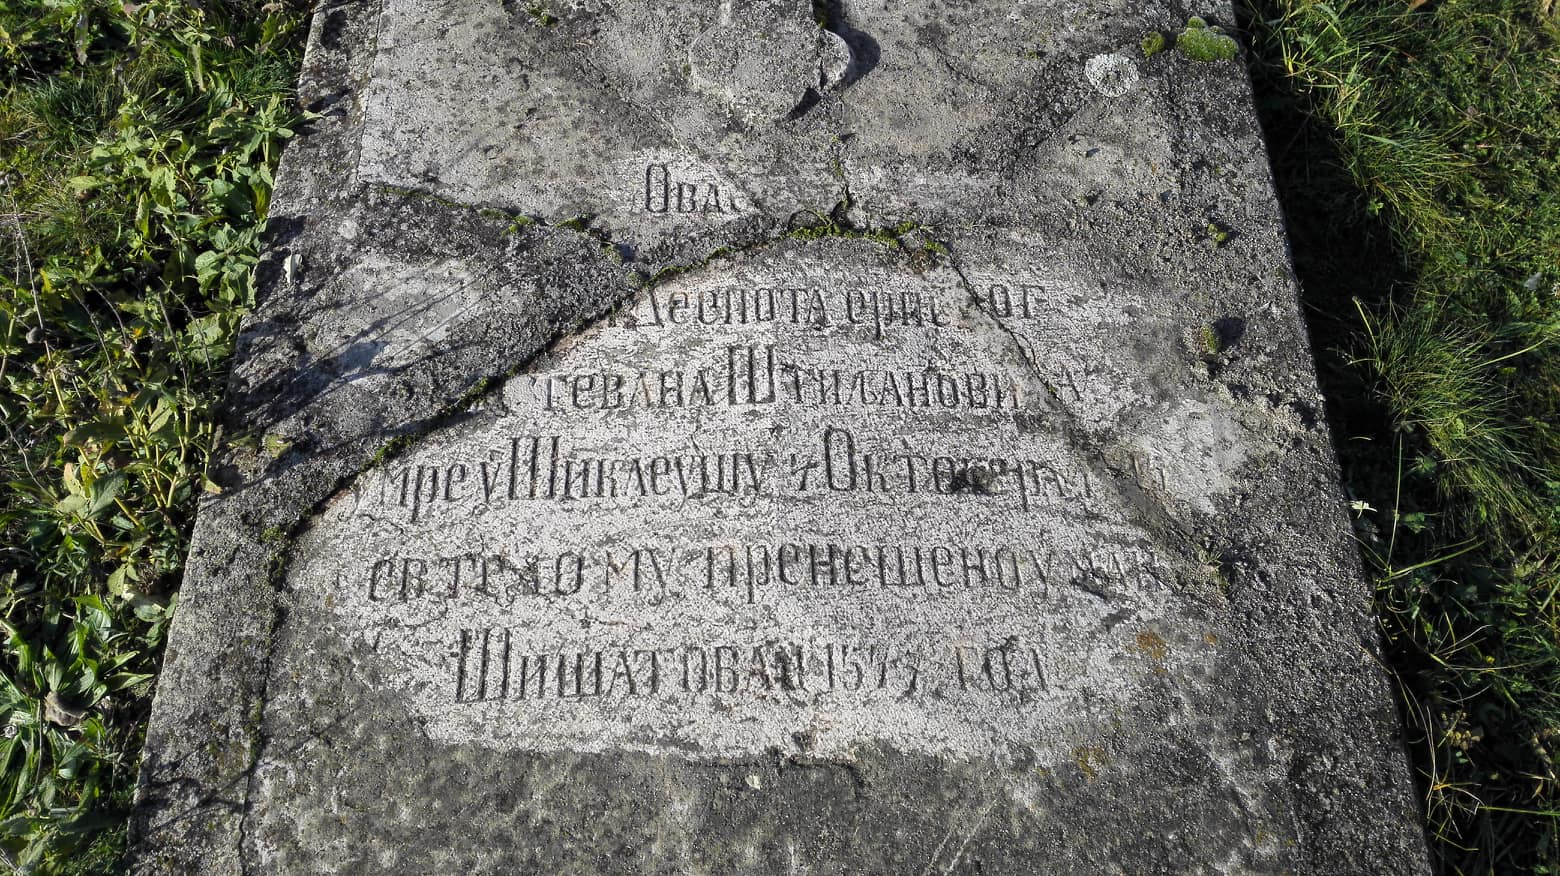 Овај
Деспота српског
Стевана Штиљановића
Умре у Шиклеушу 4 Октобра
св тело му пренешено у ман
Шишатовац 1543 год